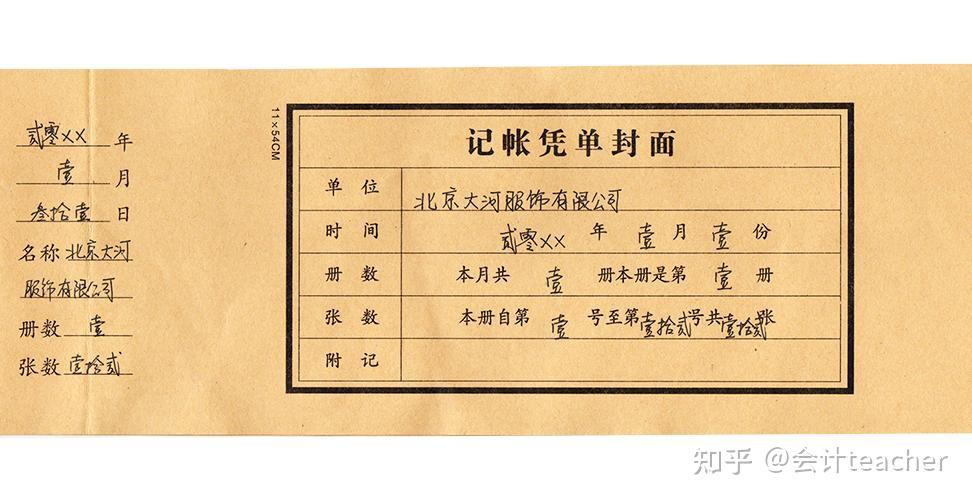 贰零××年
壹月
叁拾壹日
名称北京大河
服饰有限公司
册数壹
张数壹拾贰
11×54CM
记帐凭单封面
单位 北京大河服饰有限公司
时间 贰零××年壹月壹份
册数 本月共壹册本册是第壹册
张数 本册自第壹号至第壹拾贰号共壹拾贰张
附记
知乎 @会计teacher